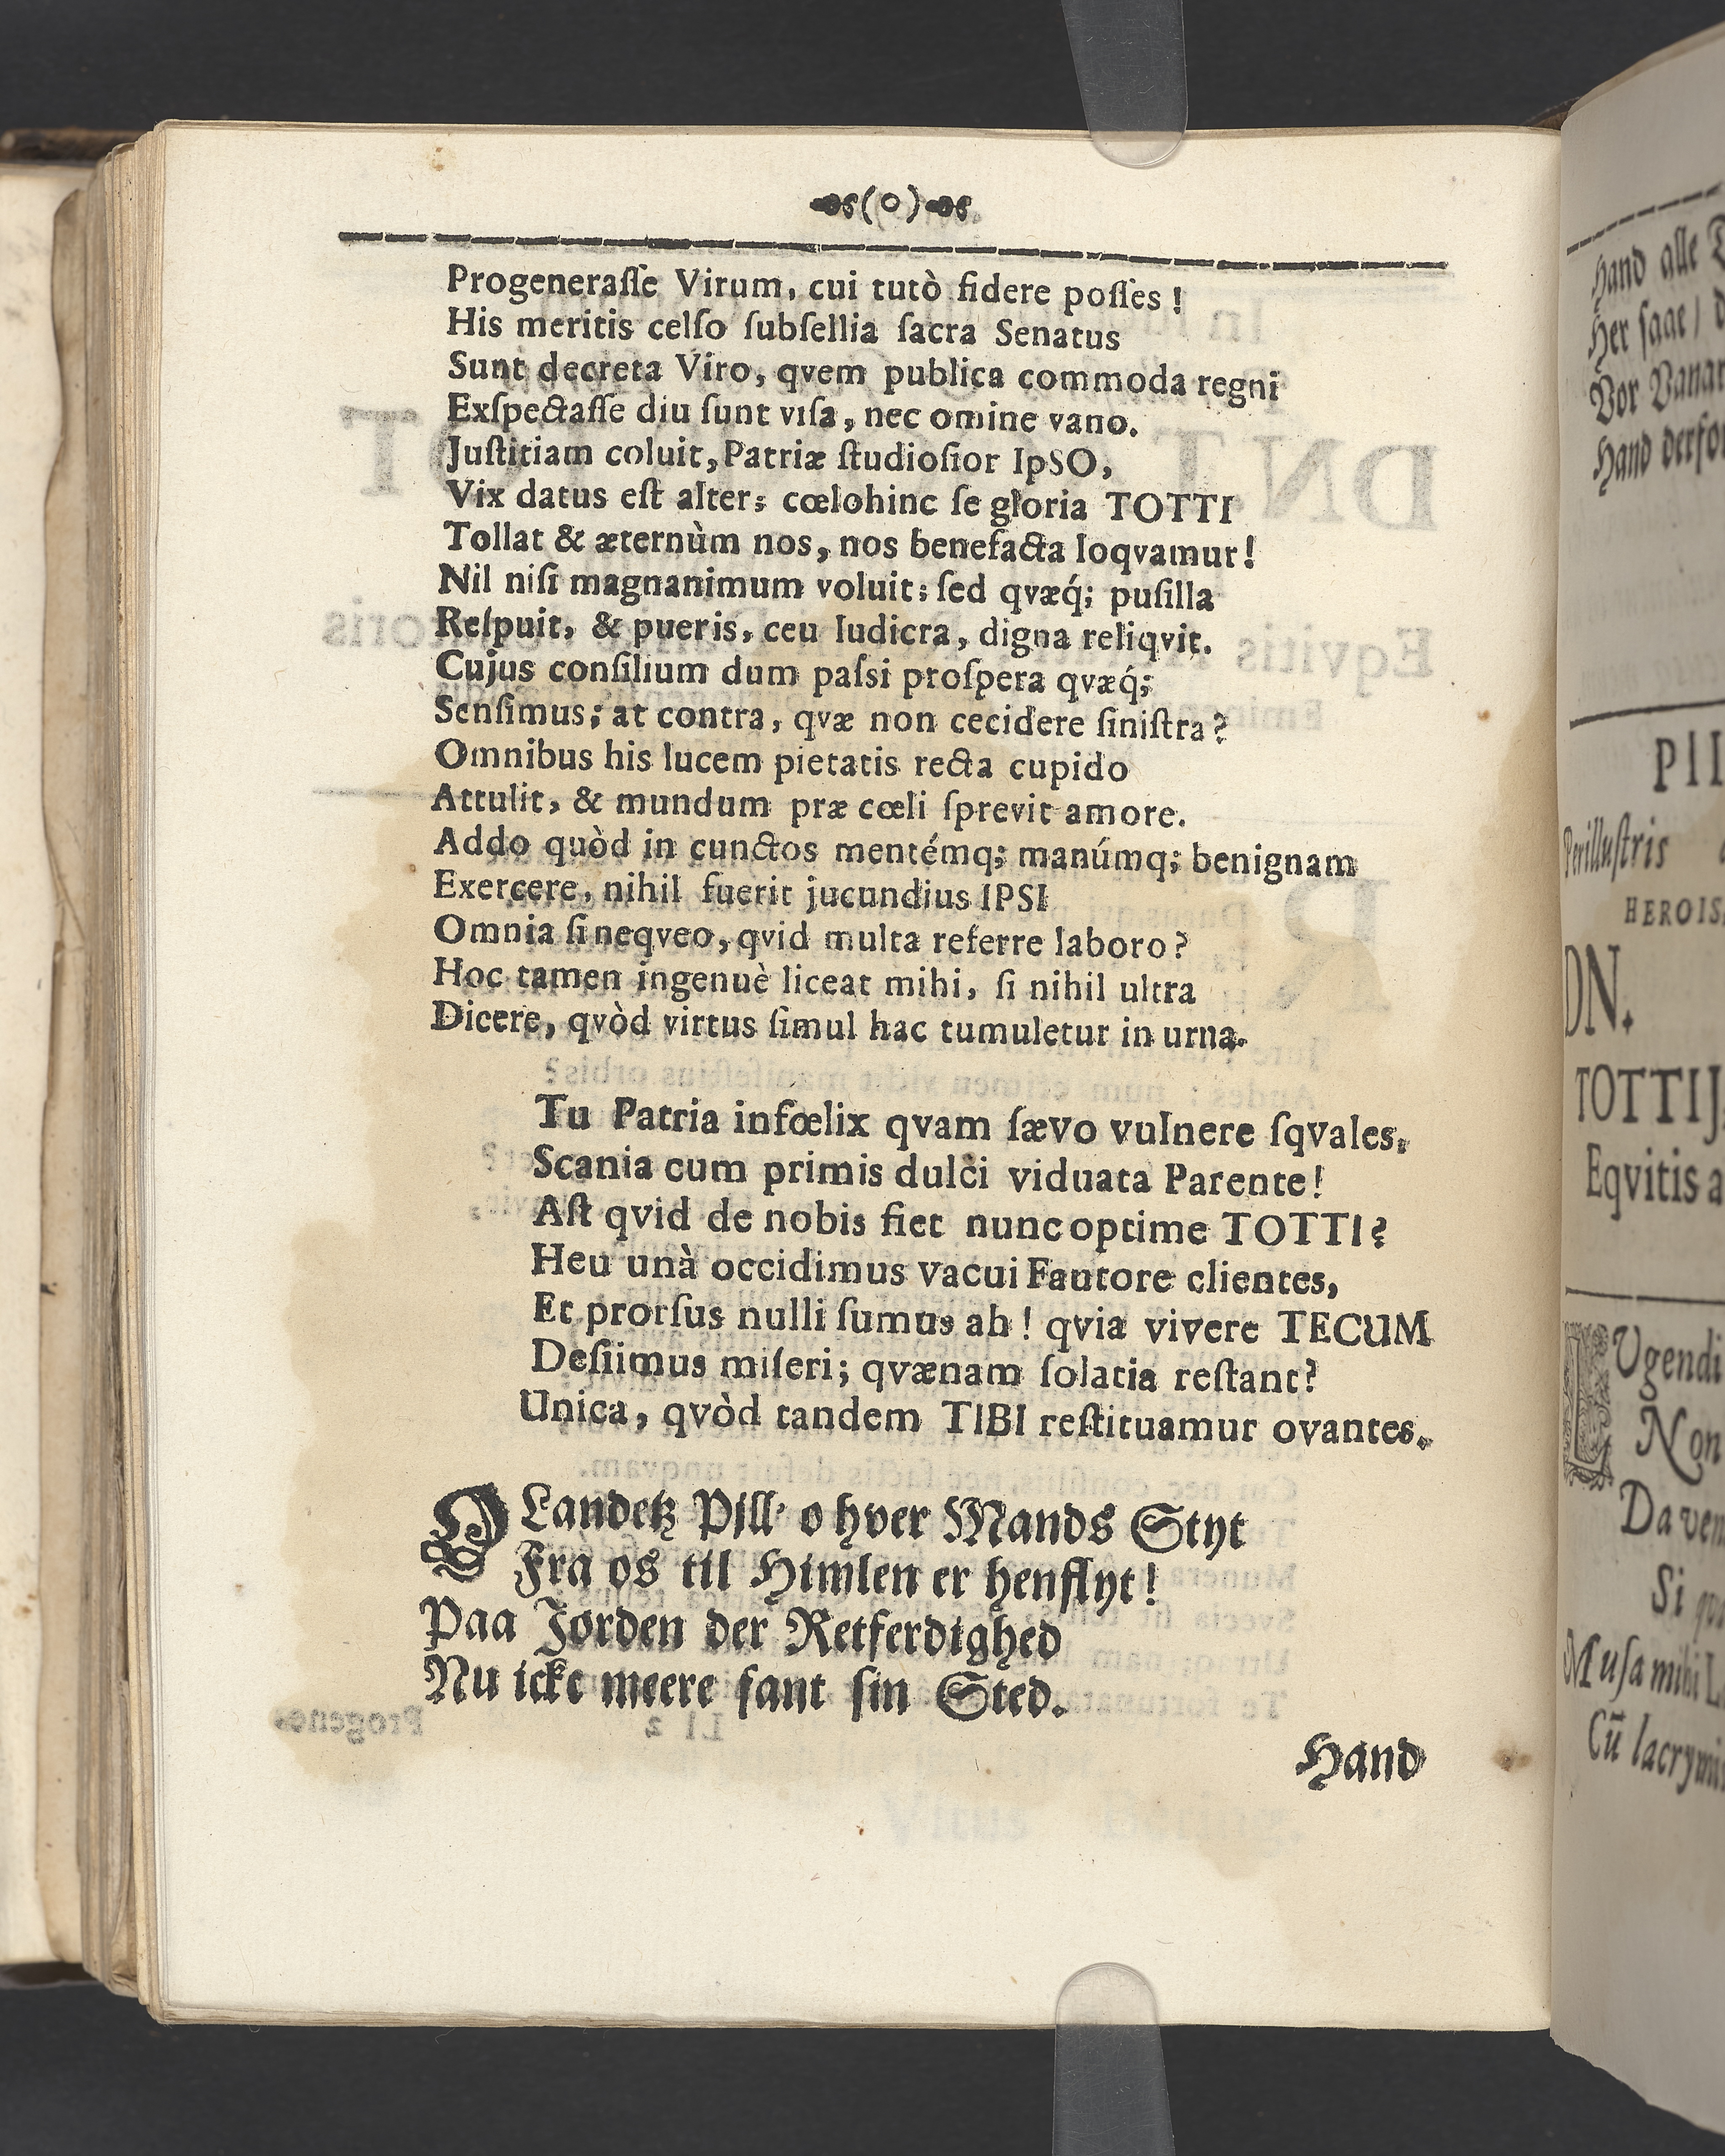 (o)
Progeneraſſe Virum, cui tutò fidere poſſes!
His meritis celſo ſubſellia ſacra Senatus
Sunt decreta Viro, qvem publica commoda regni
Exſpectaſſe diu ſunt viſa, nec omine vano.
Juſtitiam coluit, Patriæ ſtudioſior IpSO,
Vix datus eſt alter; cœlohinc ſe gloria TOTTI
Tollat & æternùm nos, nos benefacta loqvamur!
Nil niſi magnanimum voluit; ſed qvæq́; puſilla
Reſpuit, & pueris, ceu ludicra, digna reliqvit.
Cujus conſilium dum paſsi proſpera qvæq́;
Senſimus; at contra, qvæ non cecidere ſiniſtra?
Omnibus his lucem pietatis recta cupido
Attulit, & mundum præ cœli ſprevit amore.
Addo quòd in cunctos mentémq; manúmq; benignam
Exercere, nihil fuerit jucundius IPSI
Omnia ſi neqveo, qvid multa referre laboro?
Hoc tamen ingenuè liceat mihi, ſi nihil ultra
Dicere, qvòd virtus ſimul hac tumuletur in urna.
Tu Patria infœlix qvam ſævo vulnere ſqvales,
Scania cum primis dulci viduata Parente!
Aſt qvid de nobis fiet nunc optime TOTTI?
Heu unà occidimus vacui Fautore clientes,
Et prorſus nulli ſumus ah! qvia vivere TECUM
Deſiimus miſeri; qvænam ſolatia reſtant?
Unica, qvòd tandem TIBI reſtituamur ovantes.
O Landetz Pill' o hver Mands Styt
Fra os til Himlen er henflyt!
Paa Jorden der Retferdighed
Nu icke meere fant ſin Sted.
Hand
Hand alle
Her ſaae /
Vor
Hand
PII
Perilluſtris
HEROIS
DN.
TOTTIJ
Eqvitis a
LUgendi
Non
Da
Si
Muſa mihi
Cū lacrymis